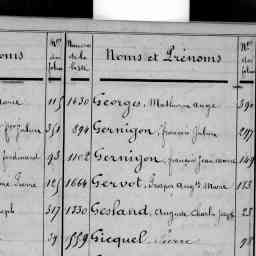 oms Nos du folio Numéros de la liste Noms et Prénoms Nos du folio
115 1430 Georges, Mathurin Ange 390
Julien 351 894 Gernigon, François Julien 297
ferdinand 93 1102 Gernigon, François Jean Marie 149
Pierre 125 1664 Gervot, Prosper Augte Marie 133
seph 317 1330 Gesland, Auguste Charles Joseph 25
39 1559 Gicquel, Pierre 98